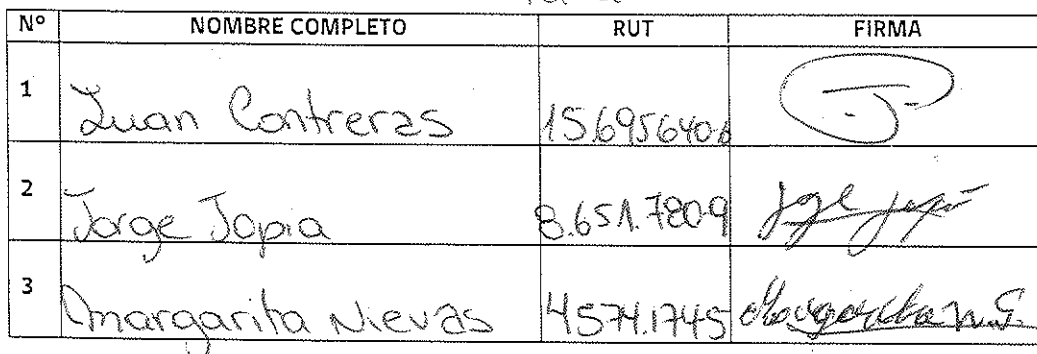 Nº NOMBRE COMPLETO RUT FIRMA
1 Juan Contreras 15.695640-6
2 Jorge Tapia 8.651.780-9 Jorge Tapia
3 Margarita Nievas 4574.174-5 Margarita N.G.